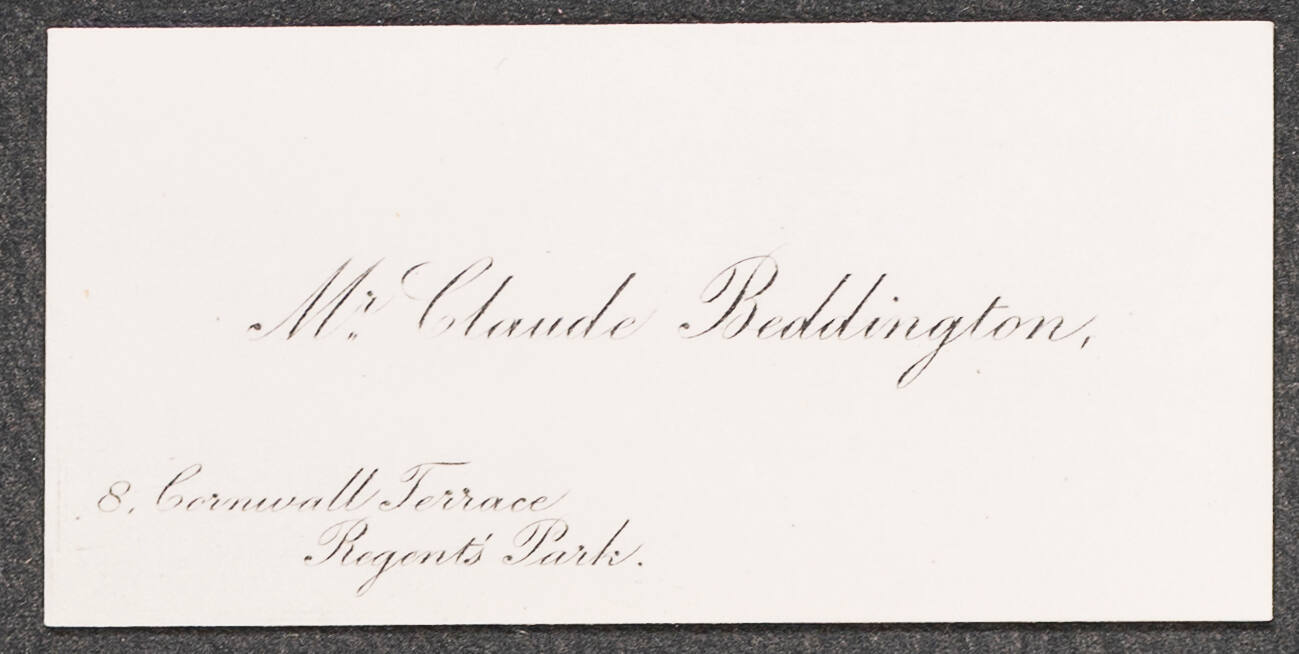 Mr. Claude Beddington,
8, Cornwall Terrace
Regent's Park.